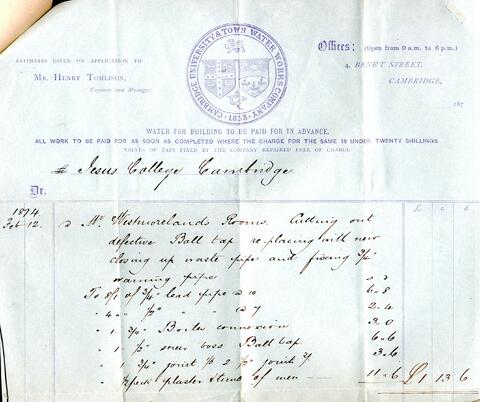 ESTIMATES GIVEN ON APPLICATION TO
MR. HENRY TOMLISON,
Engineer and Manager.
CAMBRIDGE UNIVERSITY & TOWN WATER WORKS COMPANY
· 1853 ·
Offices: (Open from 9 a.m. to 6 p.m.)
4, BENET STREET,
CAMBRIDGE,
187
WATER FOR BUILDING TO BE PAID FOR IN ADVANCE.
ALL WORK TO BE PAID FOR AS SOON AS COMPLETED WHERE THE CHARGE FOR THE SAME IS UNDER TWENTY SHILLINGS.
VALVES OF TAPS FIXED BY THE COMPANY REPAIRED FREE OF CHARGE.
Jesus College Cambridge
Dr.
£ s. d.
1874
Feb 12. Mr Westmorelands Rooms. Cutting out
defective Ball tap replacing with new
closing up waste pipe and fixing 3/4"
warning pipe
To of 3/4" lead pipe @ 10 6-8
" 1/2" " @ 7 2-4
" 1 3/4" Boiler connexion 3-0
" 1 1/2" boss Ball tap 6-6
" 1 3/4" joint 2 1/2" joint 3-6
" plaster & time of men 11-6 £1 13 6